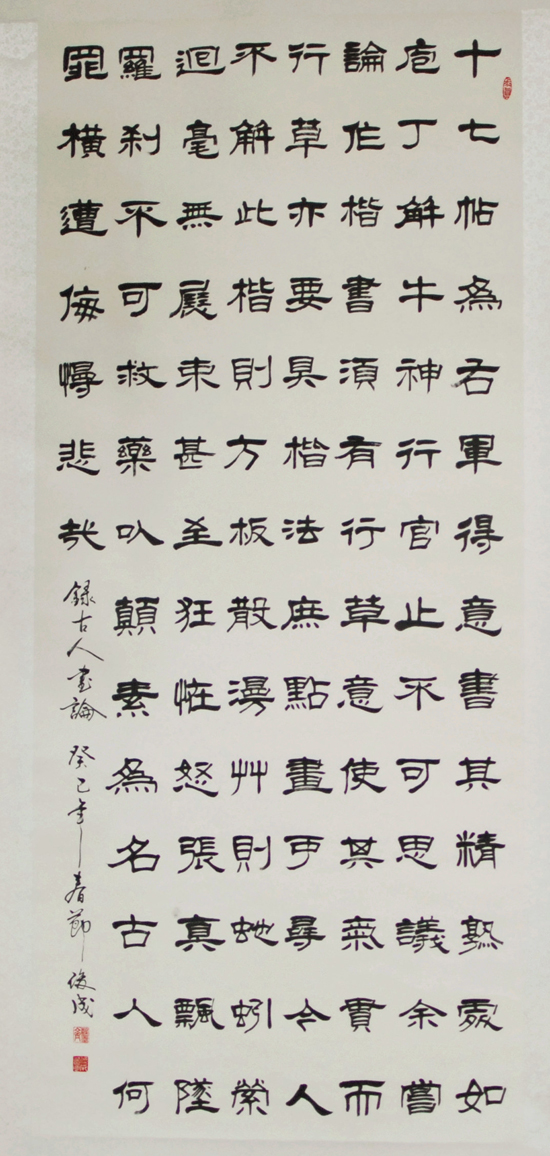 十七帖為右軍得意書其精熟處如
庖丁解牛神行官止不可思議余嘗
論作楷書須有行草意使其氣貫而
行草亦要具楷法庶點畫可尋今人
不解此楷則方板散漫艸則虵蚓縈
迴毫無展束甚至狂怪怒張真飄墜
羅刹不可救藥以顛素為名古人何
罪橫遭侮慢悲哉
錄古人書論 癸巳年春節 俊成